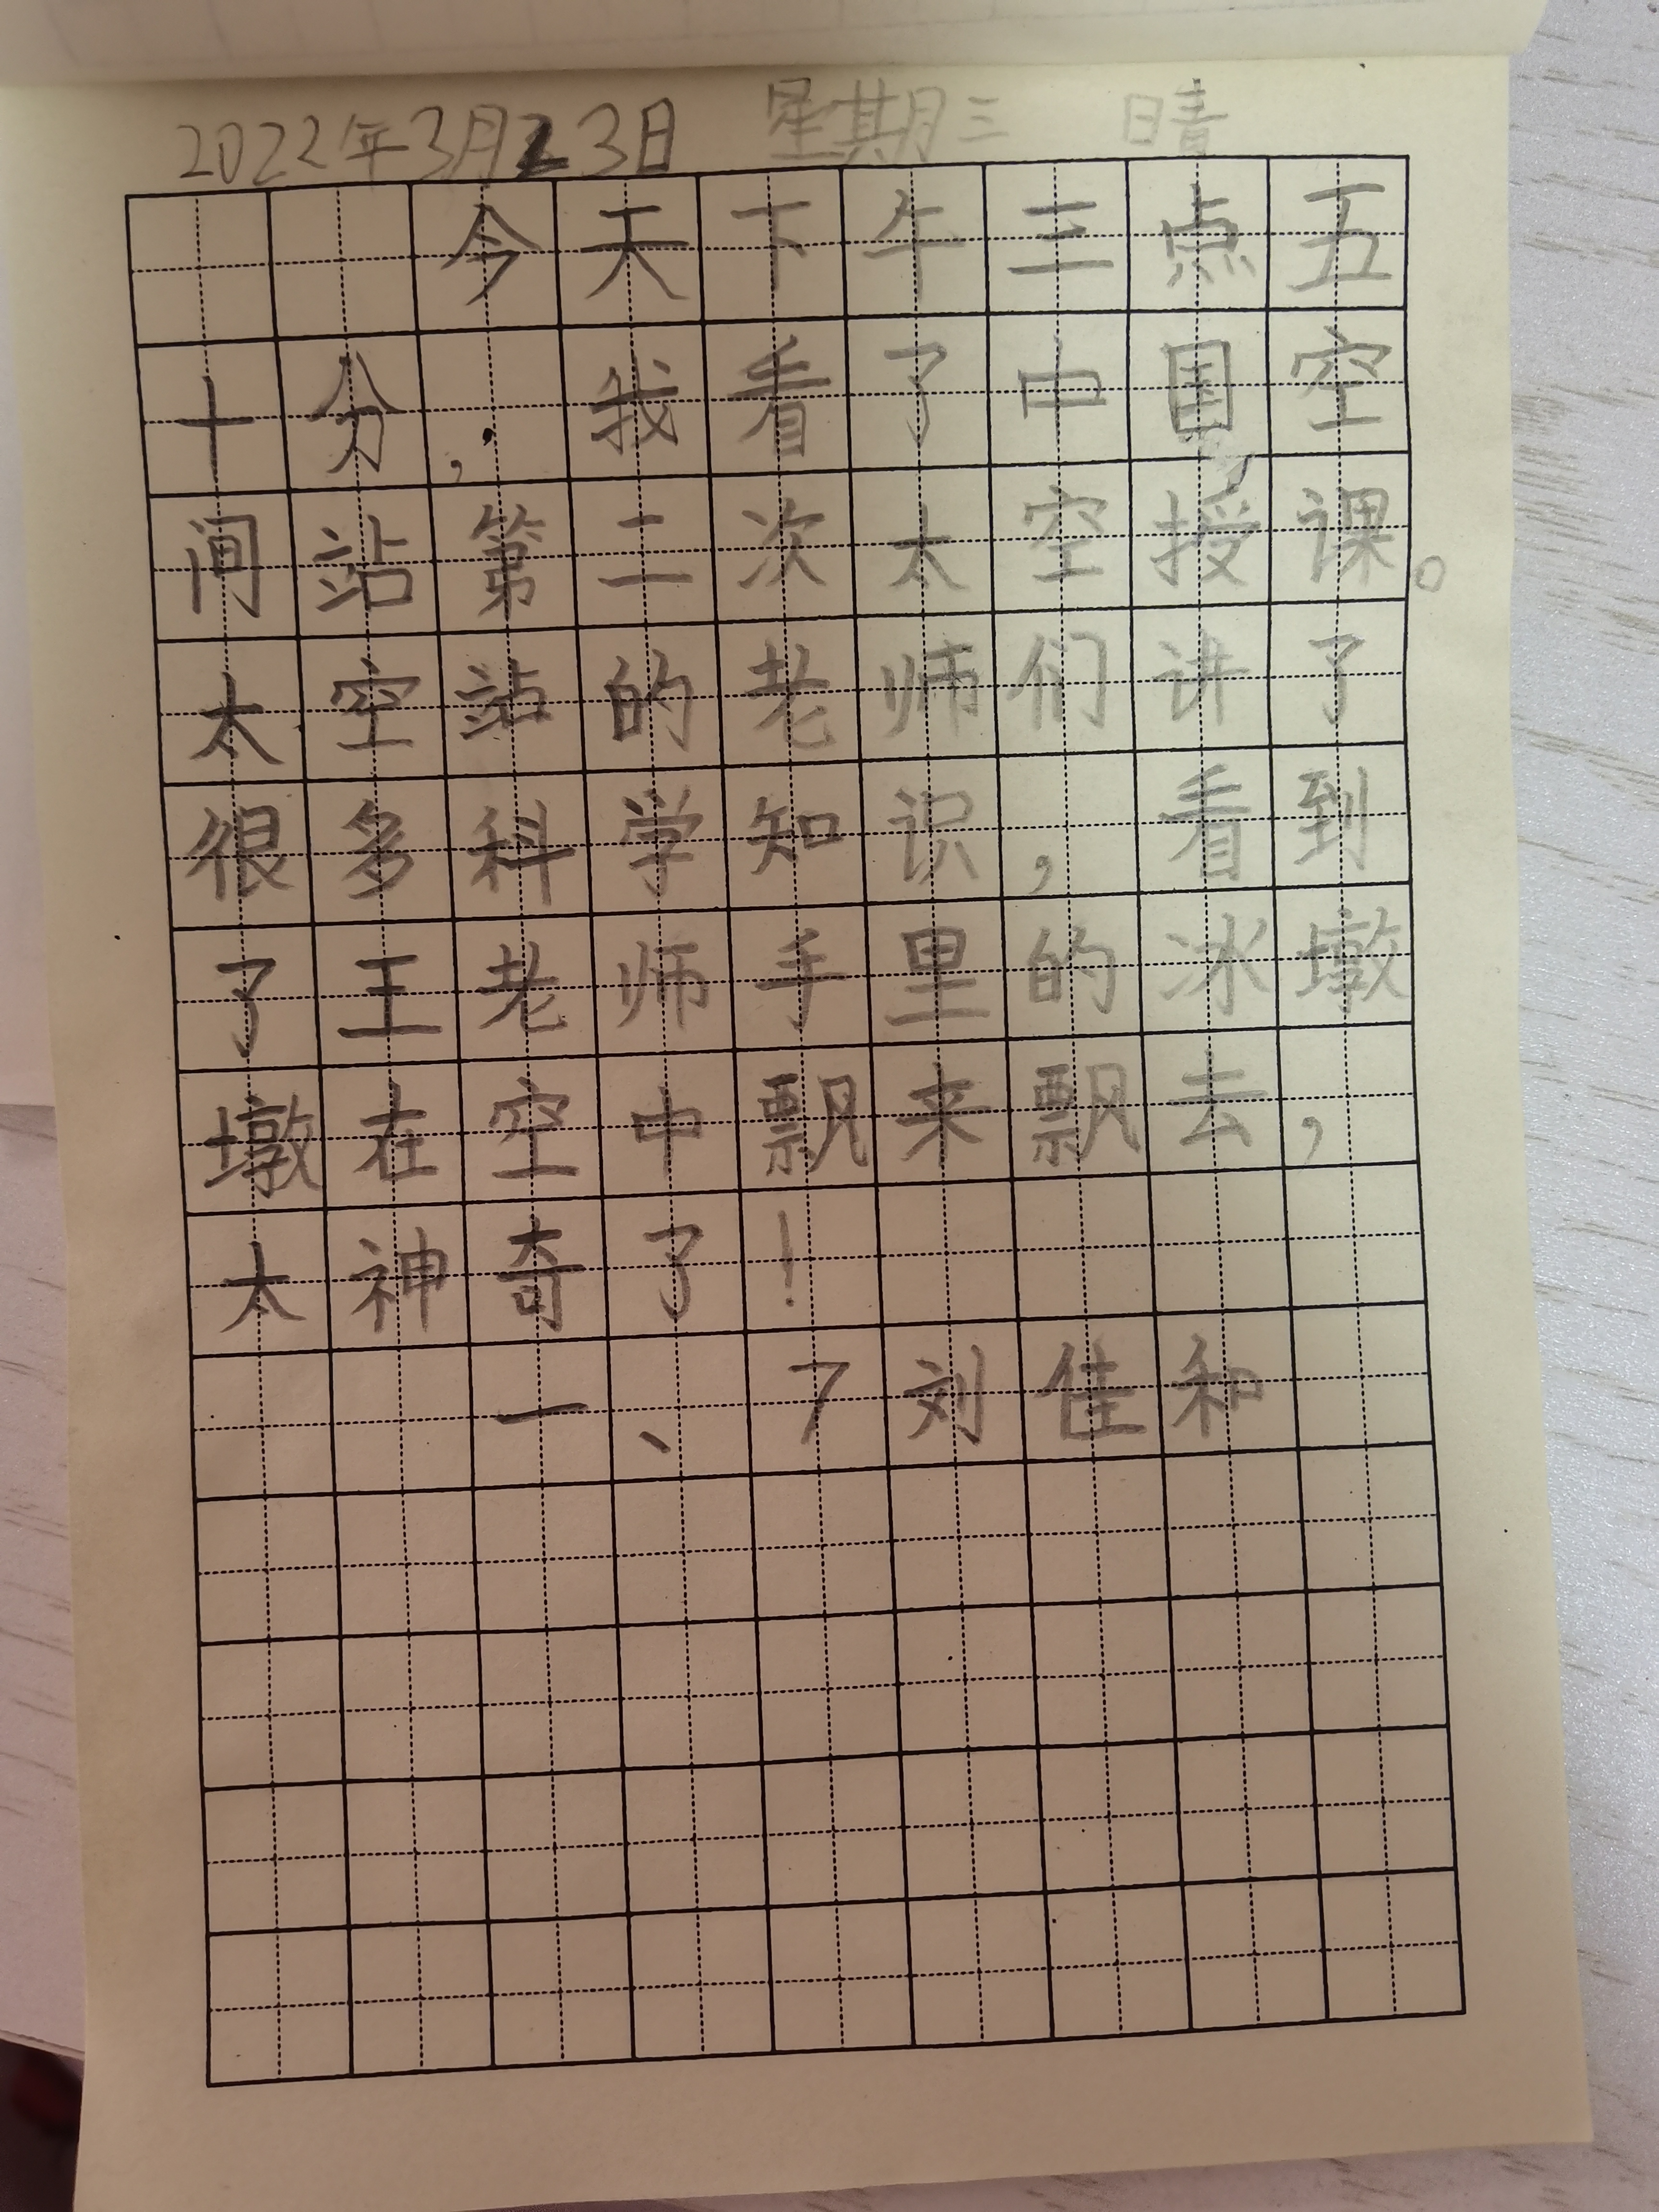 2022年3月23日 星期三 晴
今天下午三点五
十分，我看了中国空
间站第二次太空授课。
太空站的老师们讲了
很多科学知识，看到
了王老师手里的冰墩
墩在空中飘来飘去，
太神奇了！
一、7刘佳和